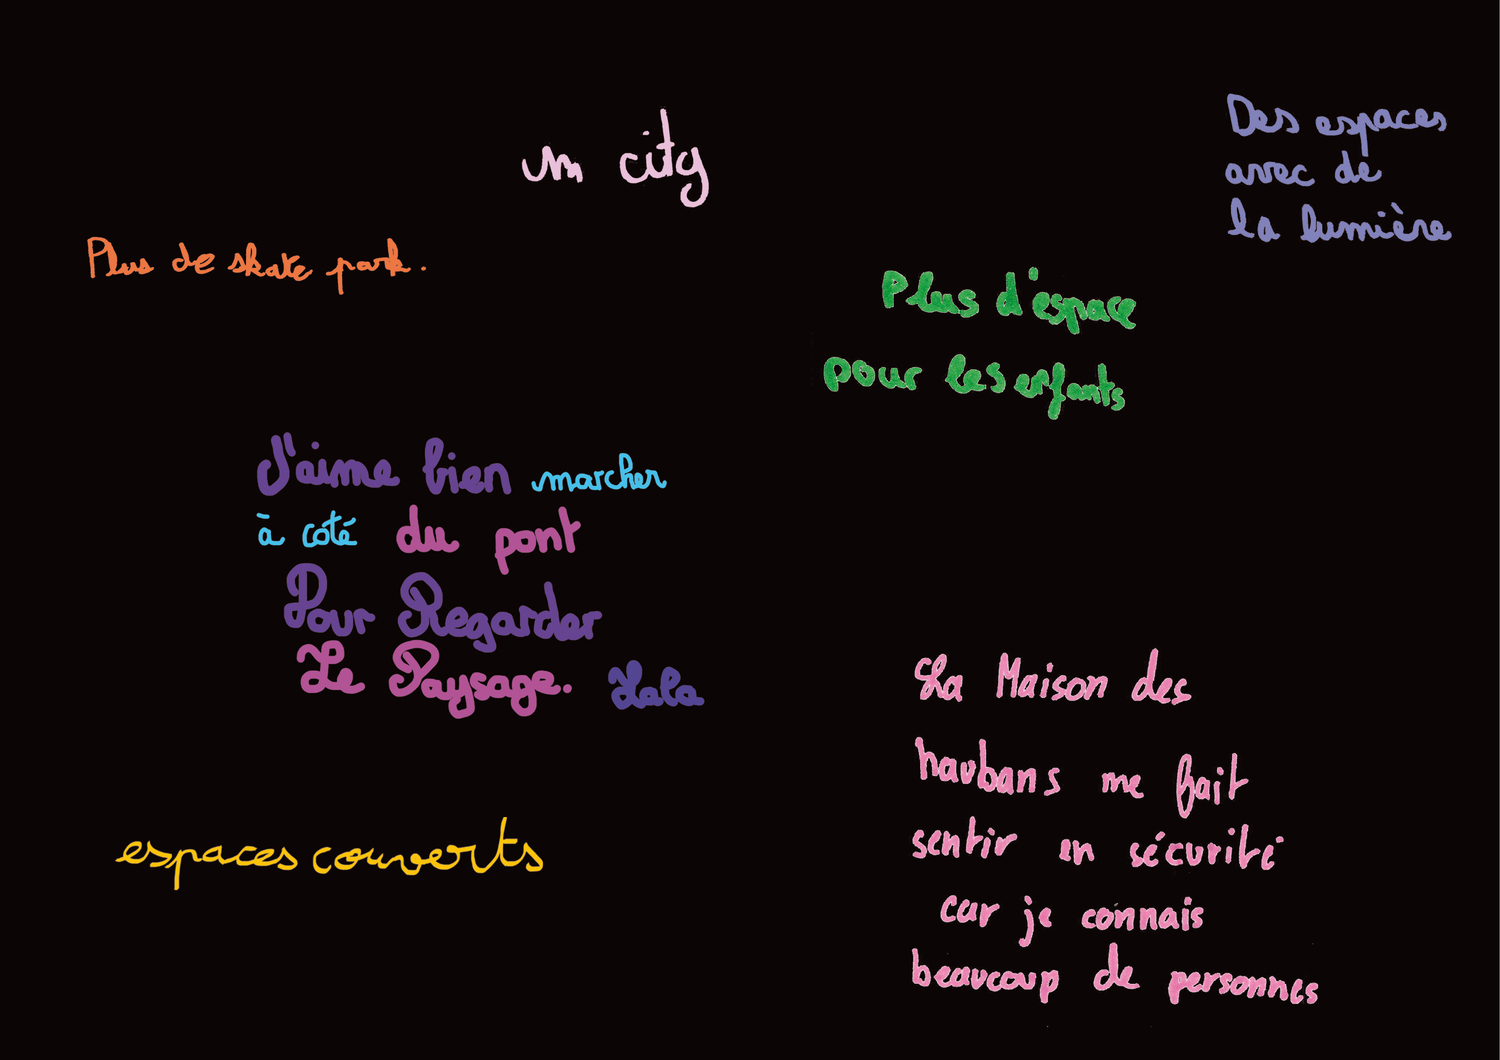 un city
Des espaces
avec de
la lumière
Plus de skate park.
Plus d'espace
pour les enfants
J'aime bien marcher
à côté du pont
Pour Regarder
Le Paysage. Lala
La Maison des
haubans me fait
sentir en sécurité
car je connais
beaucoup de personnes
espaces couverts